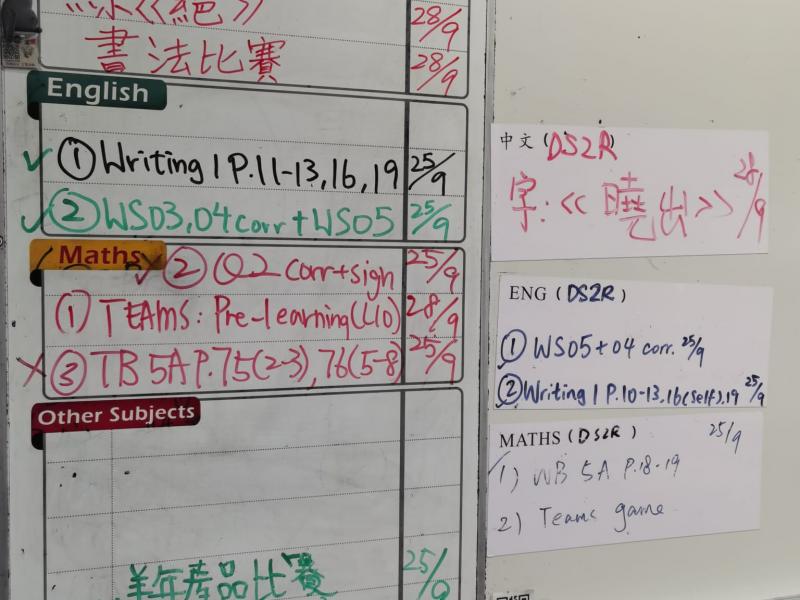 《絕》 28/9
書法比賽 28/9
English
① Writing 1 P.11-13,16,19 25/9
② WS03,04 corr + WS05 25/9
Maths
② Q2 corr+sign 25/9
① TEAMS: Pre-learning(L10) 28/9
③ TB 5A P.75(2-3),76(5-8) 25/9
Other Subjects
年產品比賽 25/9
中文(DS2R)
字:《曉出》 28/9
ENG (DS2R)
① WS05+04 corr. 25/9
② Writing 1 P.10-13,16(self),19 25/9
MATHS (DS2R) 25/9
1) WB 5A P.18-19
2) Teams game